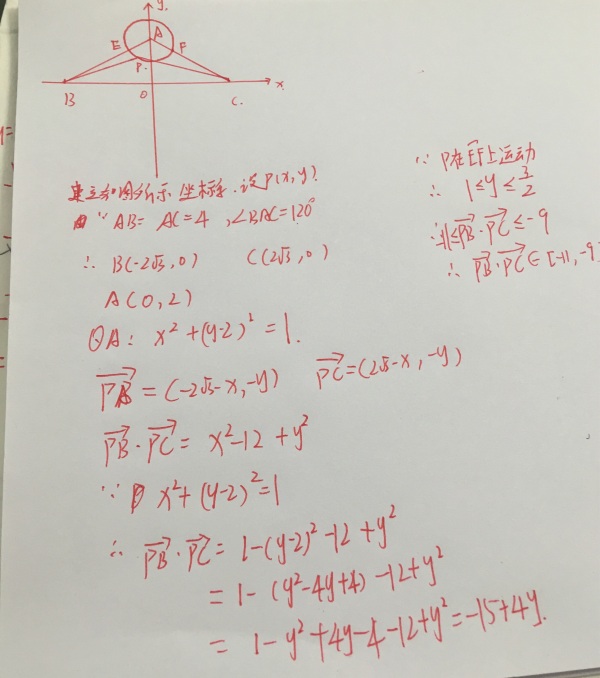 y
E A F
P
B O C x
建立如图所示坐标系.设P(x,y)
∵ AB=AC=4,∠BAC=120°
∴ B(-2√3,0) C(2√3,0)
A(0,2)
⊙A: x²+(y-2)²=1.
PB=(-2√3-x,-y) PC=(2√3-x,-y)
PB·PC=x²-12+y²
∵ x²+(y-2)²=1
∴ PB·PC=1-(y-2)²-12+y²
=1-(y²-4y+4)-12+y²
=1-y²+4y-4-12+y²=-15+4y.
∵ P在EF上运动
∴ 1≤y≤3/2
∴-11≤PB·PC≤-9
∴ PB·PC∈[-11,-9]